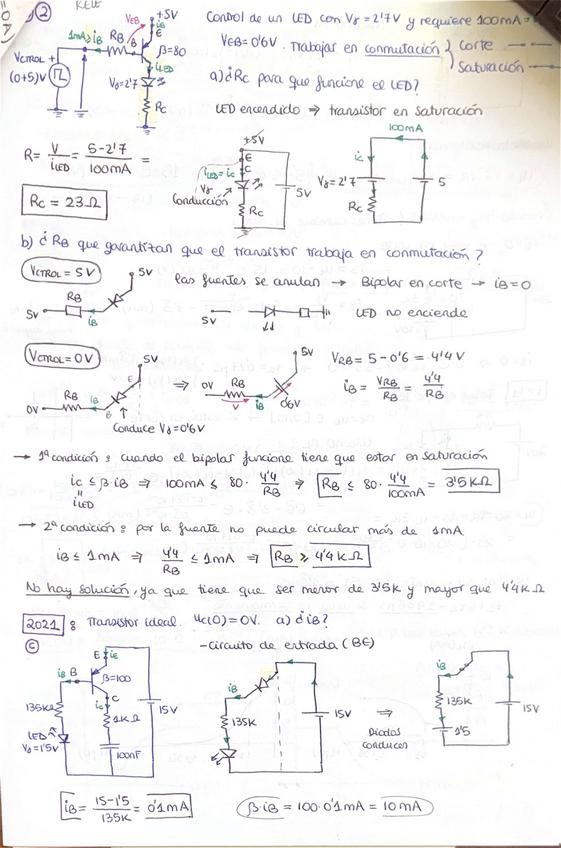 2
+5V
Control de un LED con Vγ = 2'7V y requiere 100mA =
VEB
iB
E
1mA≥iB RB B
β=80
VEB=0'6V. Trabajar en conmutación { Corte
Saturación
VCTROL +
(0÷5)V
iLED
Vγ=2'7
RC
a) ¿RC para que funcione el LED?
LED encendido ⇒ transistor en saturación
R = V/iLED = 5-2'7/100mA =
RC = 23Ω
+5V
E
C
iLED = iC
Vγ
Conducción
RC
5V
100mA
iC
Vγ=2'7
RC
5
b) ¿RB que garantizan que el transistor trabaja en conmutación?
VCTROL = 5V
5V
RB
5V
iB
las fuentes se anulan → Bipolar en corte → iB=0
5V
LED no enciende
VCTROL = 0V
5V
E
RB
iB
0V
B
Conduce Vγ=0'6V
⇒
5V
0V
RB
V
iB
0'6V
VRB = 5-0'6 = 4'4V
iB = VRB/RB = 4'4/RB
→ 1ª condición: cuando el bipolar funcione tiene que estar en saturación
iC ≤ β·iB ⇒ 100mA ≤ 80· 4'4/RB ⇒ RB ≤ 80· 4'4/100mA = 3'5KΩ
iLED
→ 2ª condición: por la fuente no puede circular más de 1mA
iB ≤ 1mA ⇒ 4'4/RB ≤ 1mA ⇒ RB ≥ 4'4KΩ
No hay solución, ya que tiene que ser menor de 3'5K y mayor que 4'4KΩ
2021: Transistor ideal. uc(0)=0V. a) ¿iB?
C
- Circuito de entrada (BE)
E
iE
iB B
β=100
C
iC
135KΩ
1KΩ
LED
Vγ=1'5V
100nF
15V
iB
135K
15V
⇒
Diodos
conducen
iB
135K
1'5
15V
iB = 15-1'5/135K = 0'1mA
β·iB = 100·0'1mA = 10mA